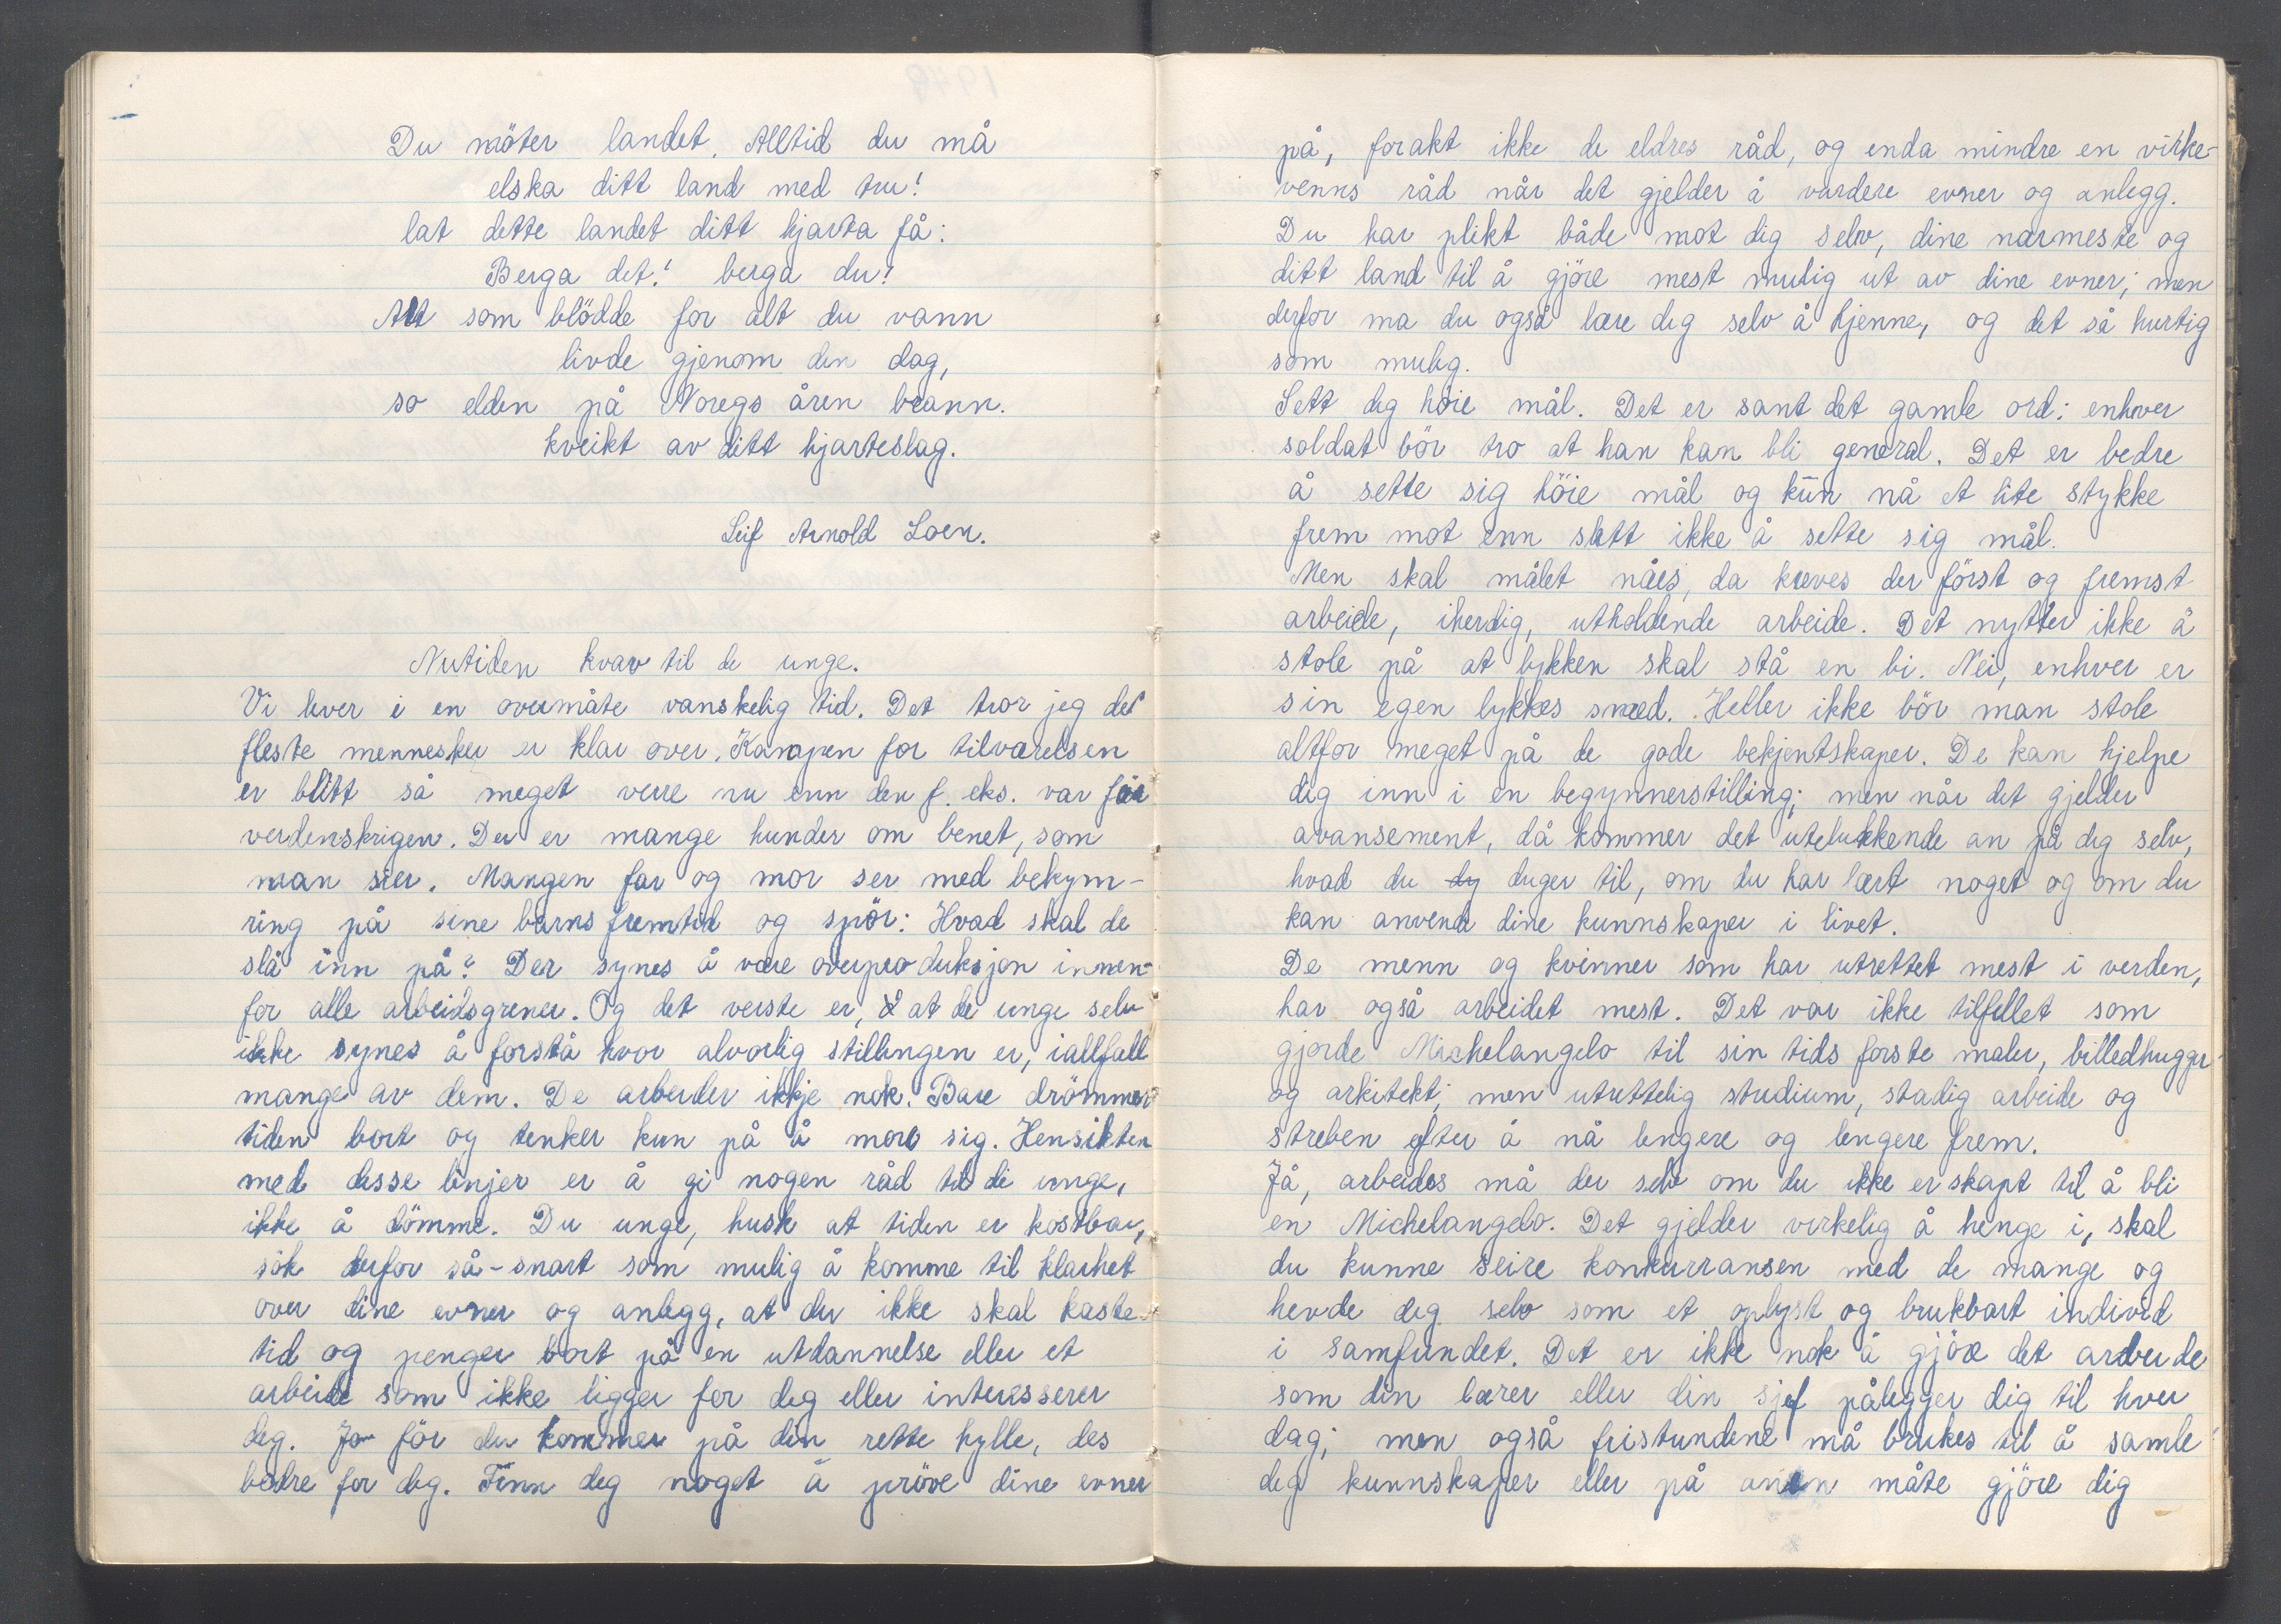 Du möter landet. Alltid du må
elska ditt land med tru!
lat dette landet ditt hjarta få:
Berga det! berga du!
Alt som blödde for alt du vann
livde gjenom den dag,
so elden på Noregs åren brann.
kveikt av ditt hjarteslag.
Leif Arnold Loen.
Nutiden krav til de unge.
Vi lever i en overmåte vanskelig tid. Det tror jeg det
fleste mennesker er klar over. Kampen for tilværelsen
er blitt så meget verre nu enn den f. eks. var för
verdenskrigen. Der er mange hunder om benet, som
man sier. Mangen far og mor ser med bekym-
ring på sine barns fremtid og spör: Hvad skal de
slå inn på? Der synes å være overproduksjon innen-
for alle arbeidsgrener. Og det verste er, at de unge selv
ikke synes å forstå hvor alvorlig stillingen er, iallfall
mange av dem. De arbeider ikkje nok. Bare drömmer
tiden bort og tenker kun på å more sig. Hensikten
med disse linjer er å gi nogen råd til de unge,
ikke å dömme. Du unge, husk at tiden er kostbar,
sök derfor så-snart som mulig å komme til klarhet
over dine evner og anlegg, at du ikke skal kaste
tid og penger bort på en utdannelse eller et
arbeide som ikke ligger for dig eller interesserer
dig. Jo för du kommer på din rette hylle, des
bedre for dig. Finn deg noget å pröve dine evner
på, forakt ikke de eldres råd, og enda mindre en virke-
venns råd når det gjelder å vurdere evner og anlegg.
Du har plikt både mot dig selv, dine nærmeste og
ditt land til å gjöre mest mulig ut av dine evner; men
derfor ma du også lære dig selv å kjenne, og det så hurtig
som mulig.
Sett dig höie mål. Det er sant det gamle ord: enhver
soldat bör tro at han kan bli general. Det er bedre
å sette sig höie mål og kun nå et lite stykke
frem mot enn slett ikke å sette sig mål.
Men skal målet nåes, da kreves der först og fremst
arbeide, iherdig, utholdende arbeide. Det nytter ikke å
stole på at lykken skal stå en bi. Nei, enhver er
sin egen lykkes smed. Heller ikke bör man stole
altfor meget på de gode bekjentskaper. De kan hjelpe
dig inn i en begynnerstilling; men når det gjelder
avansement, då kommer det utelukkende an på dig selv,
hvad du dy duger til, om du har lært noget og om du
kan anvend dine kunnskaper i livet.
De menn og kvinner som har utrettet mest i verden,
har også arbeidet mest. Det var ikke tilfellet som
gjorde Michelangelo til sin tids forste maler, billedhugger
og arkitekt; men utrettelig studium, stadig arbeide og
streben efter å nå lengere og lengere frem.
Jå, arbeides må du selv om du ikke er skapt til å bli
en Michelangelo. Det gjelder virkelig å henge i, skal
du kunne seire konkurransen med de mange og
hevde dig selv som et oplyst og brukbart individ
i samfundet. Det er ikke nok å gjöre det arbeide
som din lærer eller din sjef pålegger dig til hver
dag; men også fristundene må brukes til å samle
dig kunnskaper eller på anen måte gjöre dig